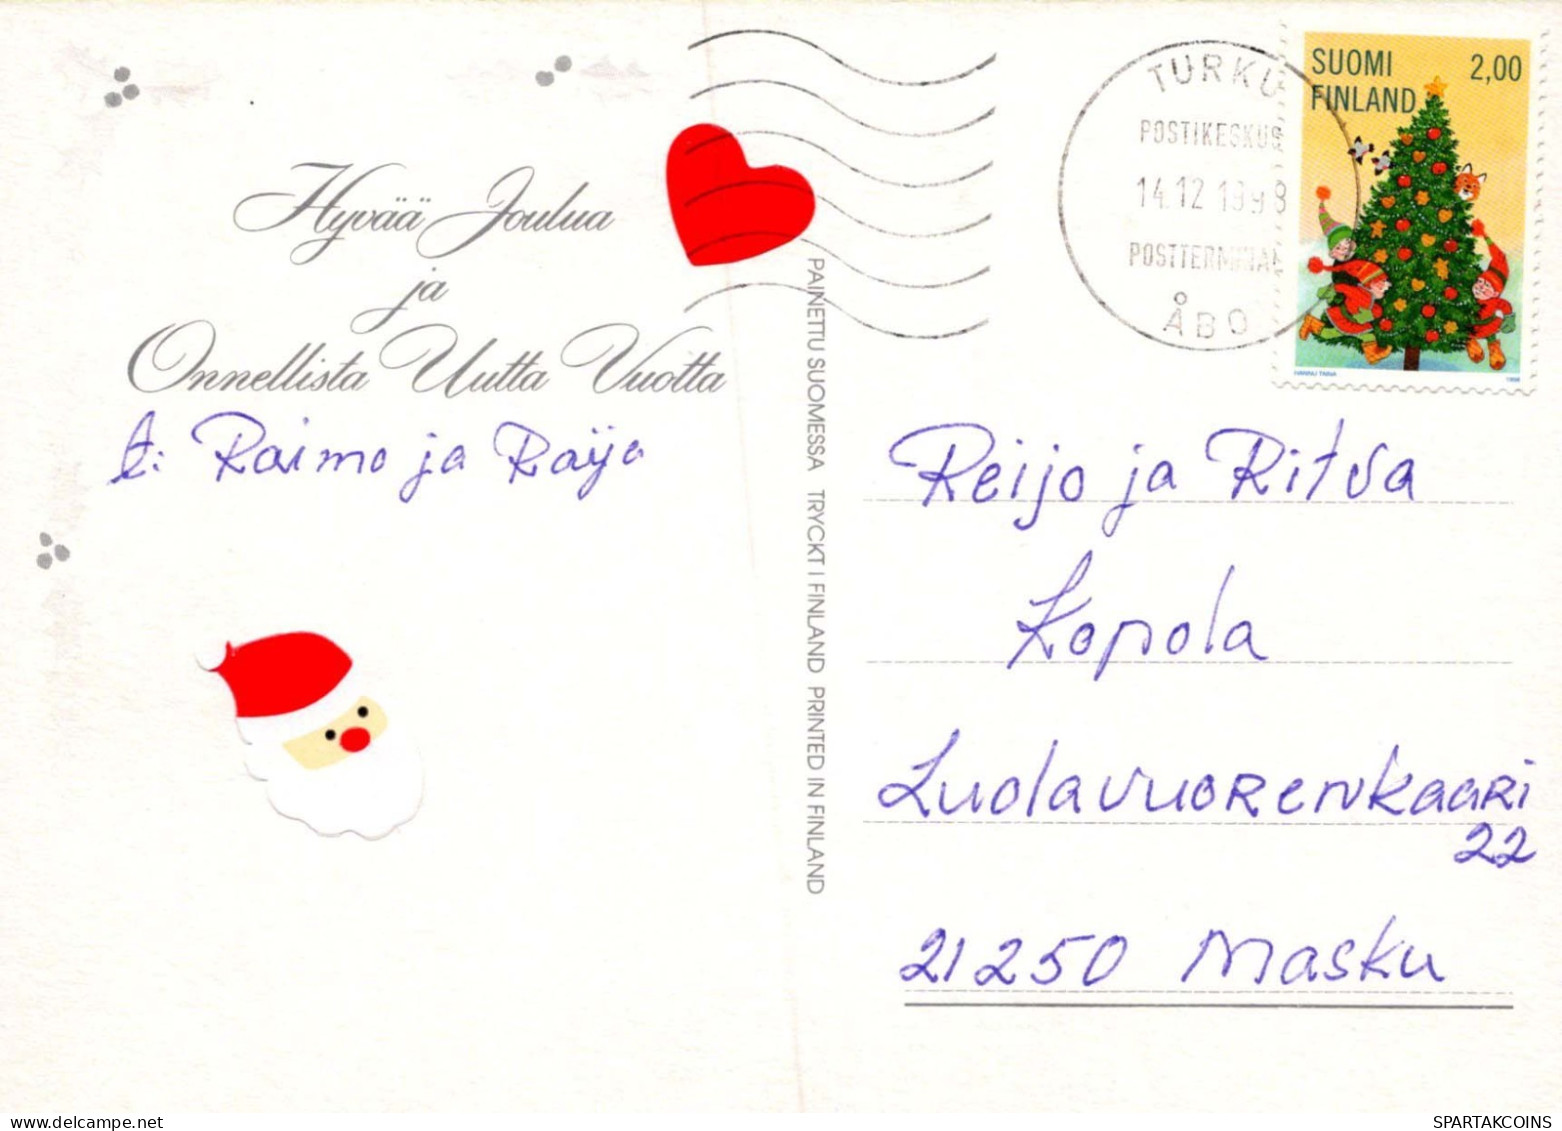 Hyvää Joulua
ja
Onnellista Uutta Vuotta
t: Raimo ja Raija
PAINETTU SUOMESSA TRYCKT I FINLAND PRINTED IN FINLAND
TURKU
POSTIKESKUS
14.12.1998
POSTTERMINAL
ÅBO
SUOMI 2,00
FINLAND
HANNU TAINA 1998
Reijo ja Ritva
Kopola
Luolavuorenkaari
22
21250 Masku
SPARTAKCOINS